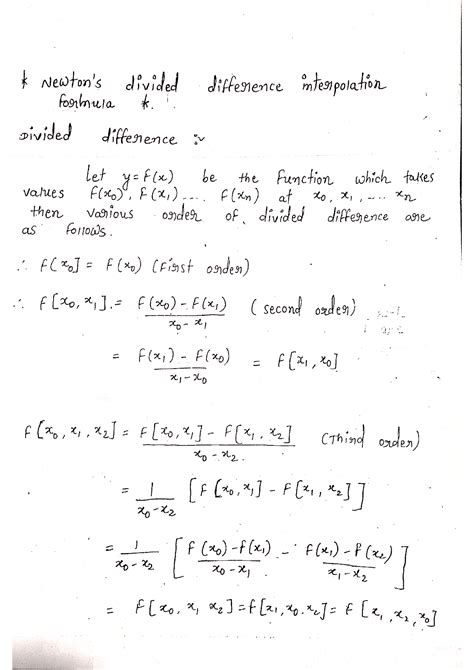 * Newton's divided difference interpolation
formula *.
Divided difference :-
Let y = f(x) be the function which takes
values f(x₀), f(x₁) .... f(xn) at x₀, x₁, .... xn
then various order of divided difference are
as follows.
∴ f[x₀] = f(x₀) (first order)
∴ f[x₀, x₁] = f(x₀) - f(x₁) / x₀ - x₁ (second order)
= f(x₁) - f(x₀) / x₁ - x₀ = f[x₁, x₀]
f[x₀, x₁, x₂] = f[x₀, x₁] - f[x₁, x₂] / x₀ - x₂ (Third order)
= 1 / x₀ - x₂ [f[x₀, x₁] - f[x₁, x₂]]
= 1 / x₀ - x₂ [f(x₀) - f(x₁) / x₀ - x₁ - f(x₁) - f(x₂) / x₁ - x₂]
= f[x₀, x₁ x₂] = f[x₁, x₀. x₂] = f[x₁, x₂, x₀]